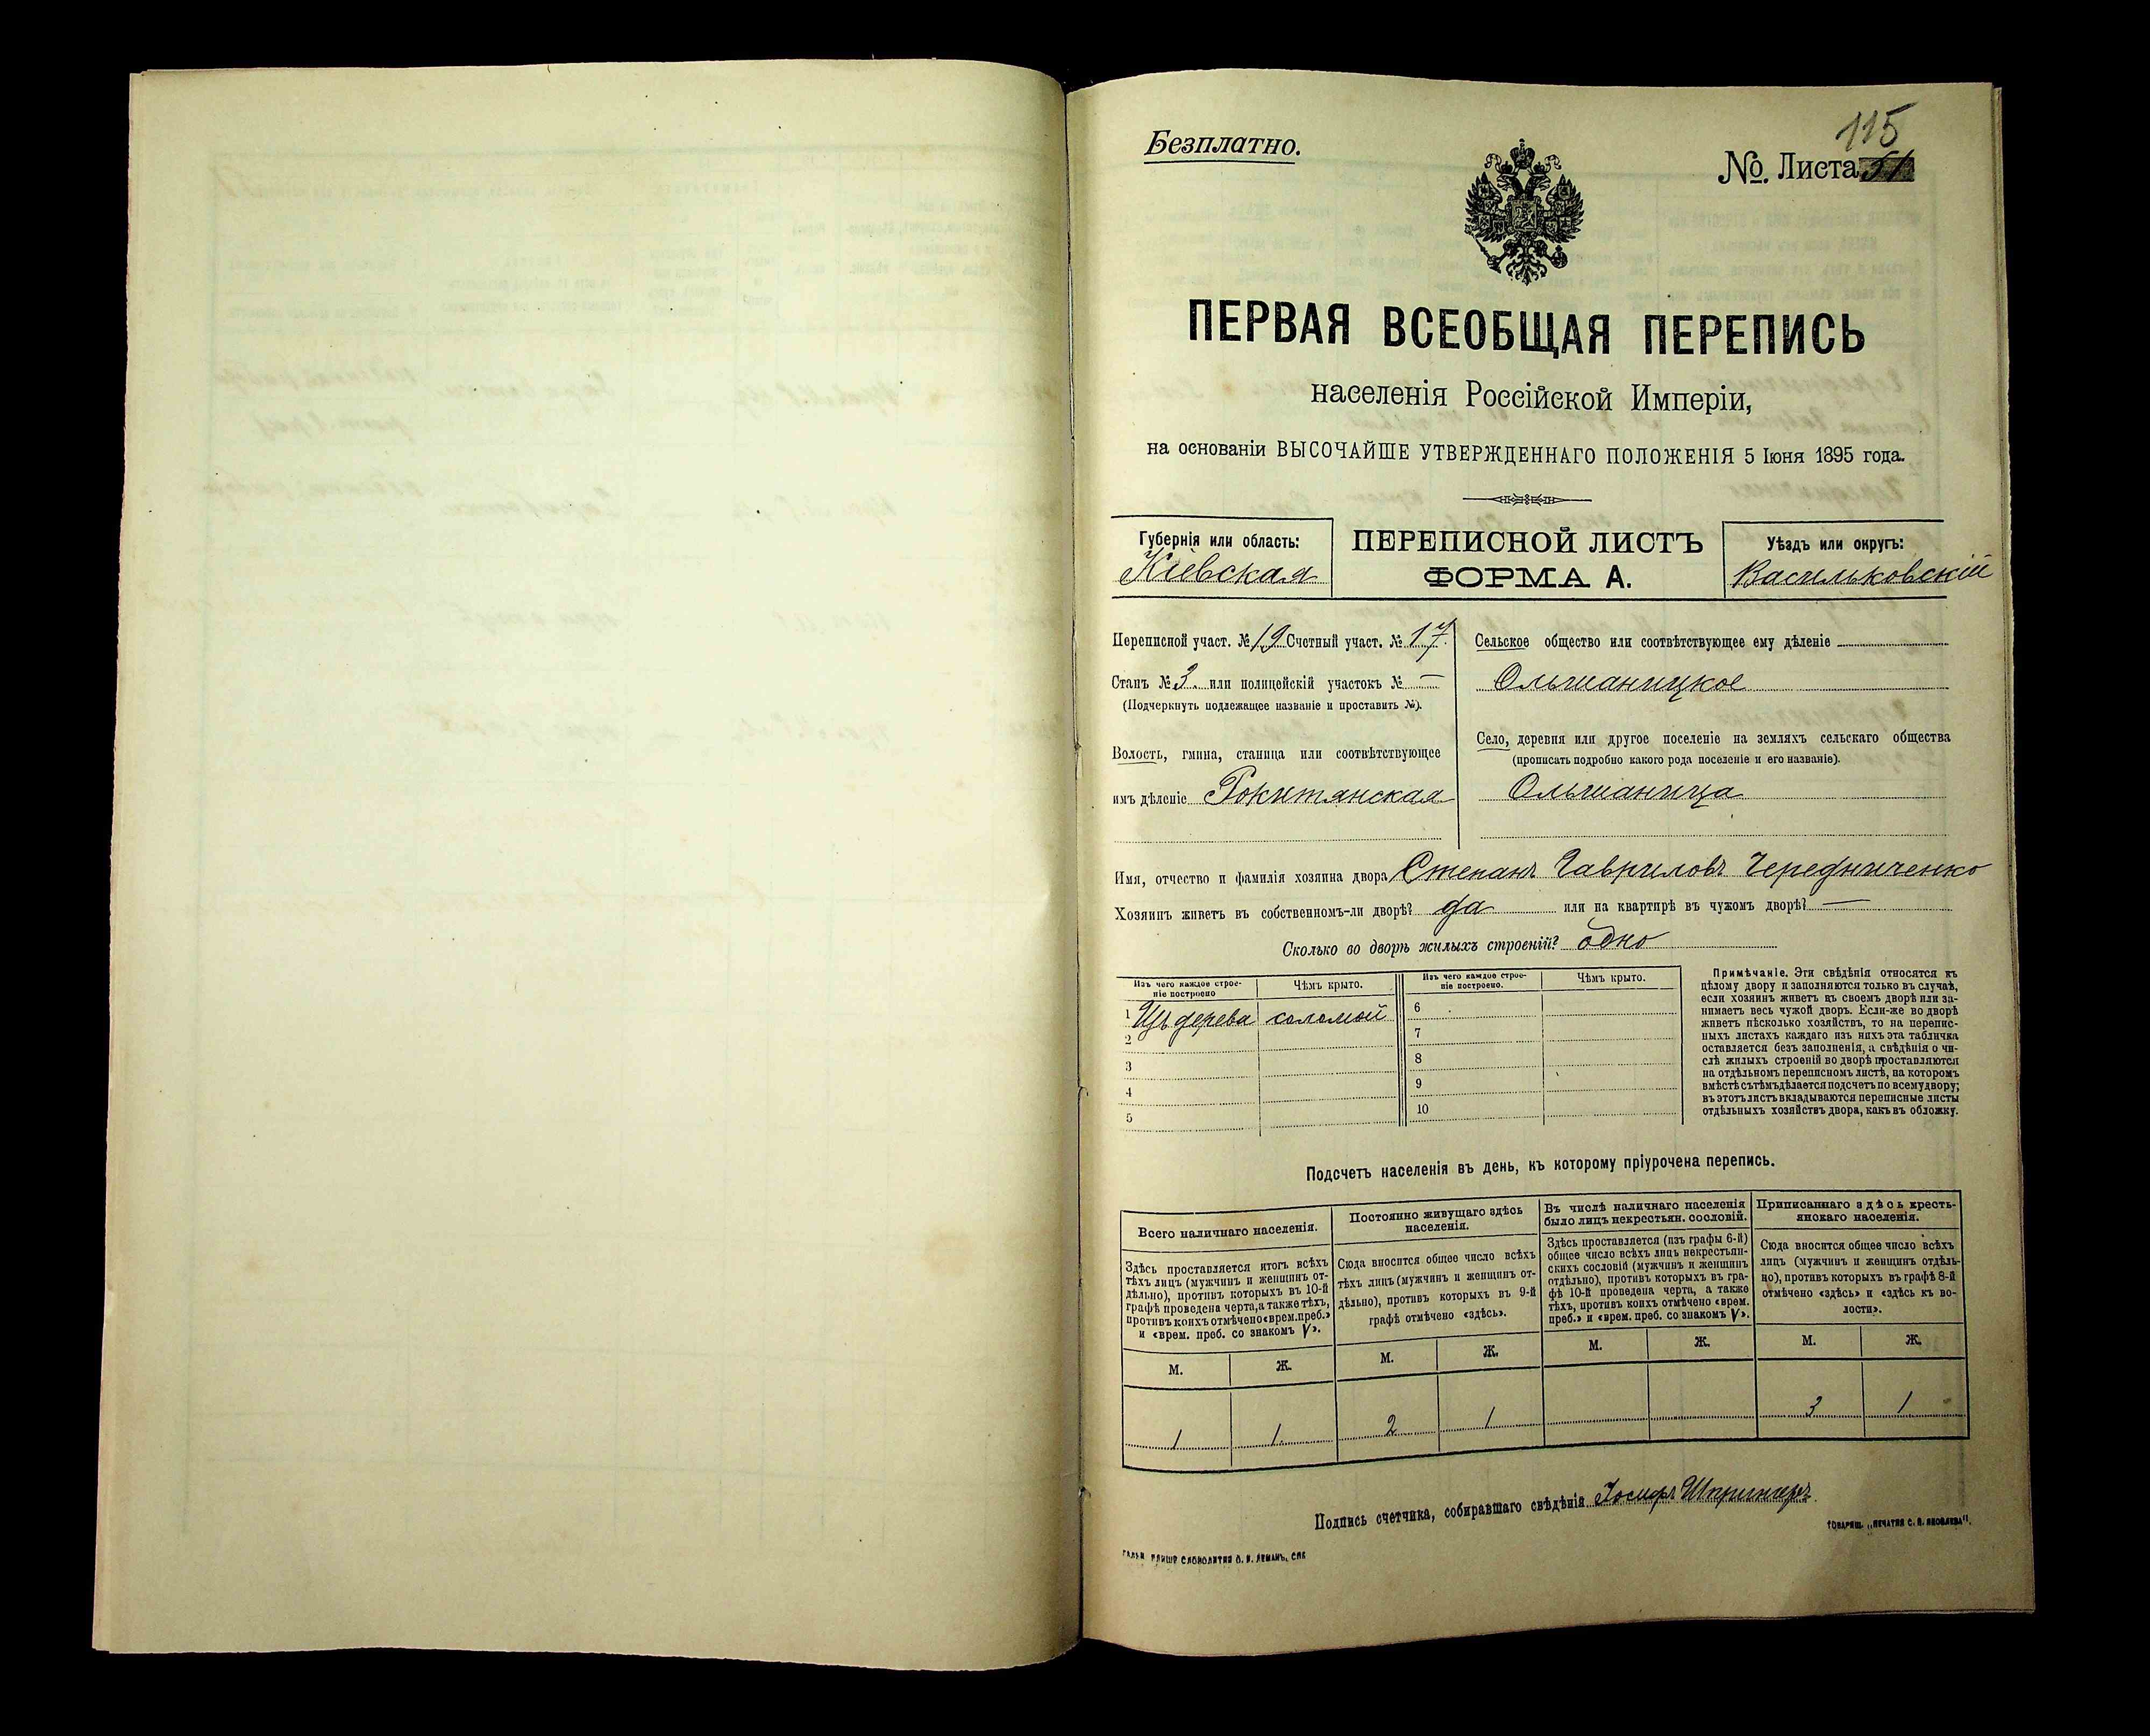 115
Безплатно.
№ Листа 51
ПЕРВАЯ ВСЕОБЩАЯ ПЕРЕПИСЬ
населенія Россійской Имперіи,
на основаніи ВЫСОЧАЙШЕ УТВЕРЖДЕННАГО ПОЛОЖЕНІЯ 5 Іюня 1895 года.
Губернія или область:
Кіевская
ПЕРЕПИСНОЙ ЛИСТЪ
ФОРМА А.
Уѣздъ или округъ:
Васильковскій
Переписной участ. № 19 Счетный участ. № 17
Станъ № 3 или полицейскій участокъ № —
(Подчеркнуть подлежащее названіе и проставить №).
Волость, гмина, станица или соотвѣтствующее
имъ дѣленіе Рокитянская
Сельское общество или соотвѣтствующее ему дѣленіе
Ольшаницкое
Село, деревня или другое поселеніе на земляхъ сельскаго общества
(прописать подробно какого рода поселеніе и его названіе).
Ольшаница
Имя, отчество и фамилія хозяина двора Степанъ Гавриловъ Чередниченко
Хозяинъ живетъ въ собственномъ-ли дворѣ? да или на квартирѣ въ чужомъ дворѣ? —
Сколько во дворѣ жилыхъ строеній? одно
Изъ чего каждое строе-
ніе построено
Чѣмъ крыто.
Изъ чего каждое строе-
ніе построено.
Чѣмъ крыто.
1 Изъ дерева соломой
2
3
4
5
6
7
8
9
10
Примѣчаніе. Эти свѣдѣнія относятся къ
цѣлому двору и заполняются только въ случаѣ,
если хозяинъ живетъ въ своемъ дворѣ или за-
нимаетъ весь чужой дворъ. Если-же во дворѣ
живетъ нѣсколько хозяйствъ, то на перепис-
ныхъ листахъ каждаго изъ нихъ эта табличка
оставляется безъ заполненія, а свѣдѣнія о чи-
слѣ жилыхъ строеній во дворѣ проставляются
на отдѣльномъ переписномъ листѣ, на которомъ
вмѣстѣ съ тѣмъ дѣлается подсчетъ по всему двору;
въ этотъ листъ вкладываются переписные листы
отдѣльныхъ хозяйствъ двора, какъ въ обложку.
Подсчетъ населенія въ день, къ которому пріурочена перепись.
Всего наличнаго населенія.
Здѣсь проставляется итогъ всѣхъ
тѣхъ лицъ (мужчинъ и женщинъ от-
дѣльно), противъ которыхъ въ 10-й
графѣ проведена черта, а также тѣхъ,
противъ коихъ отмѣчено «врем. преб.»
и «врем. преб. со знакомъ V».
М. Ж.
1 1
Постоянно живущаго здѣсь
населенія.
Сюда вносится общее число всѣхъ
тѣхъ лицъ (мужчинъ и женщинъ от-
дѣльно), противъ которыхъ въ 9-й
графѣ отмѣчено «здѣсь».
М. Ж.
2 1
Въ числѣ наличнаго населенія
было лицъ некрестьян. сословій.
Здѣсь проставляется (изъ графы 6-й)
общее число всѣхъ лицъ некрестьян-
скихъ сословій (мужчинъ и женщинъ
отдѣльно), противъ которыхъ въ гра-
фѣ 10-й проведена черта, а также
тѣхъ, противъ коихъ отмѣчено «врем.
преб.» и «врем. преб. со знакомъ V».
М. Ж.
Приписаннаго здѣсь кресть-
янскаго населенія.
Сюда вносится общее число всѣхъ
лицъ (мужчинъ и женщинъ отдѣль-
но), противъ которыхъ въ графѣ 8-й
отмѣчено «здѣсь» и «здѣсь къ во-
лости».
М. Ж.
3 1
Подпись счетчика, собиравшаго свѣдѣнія Іосифъ Шпрингеръ
ТОВАРИЩ. „ПЕЧАТНЯ С. П. ЯКОВЛЕВА".
СЛОВОЛИТНИ О. И. ЛЕМАНЪ, СПБ